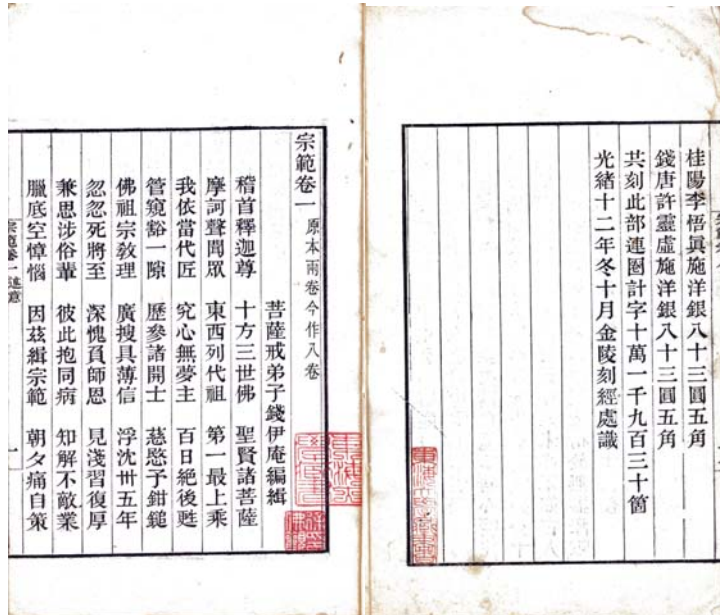 桂陽李悟眞施洋銀八十三圓五角
錢唐許靈虛施洋銀八十三圓五角
共刻此部連圈計字十萬一千九百三十箇
光緒十二年冬十月金陵刻經處識
宗範卷一 原本兩卷今作八卷
菩薩戒弟子錢伊庵編緝
稽首釋迦尊 十方三世佛 聖賢諸菩薩
摩訶聲聞眾 東西列代祖 第一最上乘
我依當代匠 究心無夢主 百日絕後甦
管窺豁一隙 歷參諸開士 慈愍予鉗鎚
佛祖宗敎理 廣搜具薄信 浮沈卅五年
忽忽死將至 深愧負師恩 見淺習復厚
兼思涉俗輩 彼此抱同病 知解不敵業
臘底空慞惱 因茲緝宗範 朝夕痛自策
宗範卷一 述意 一